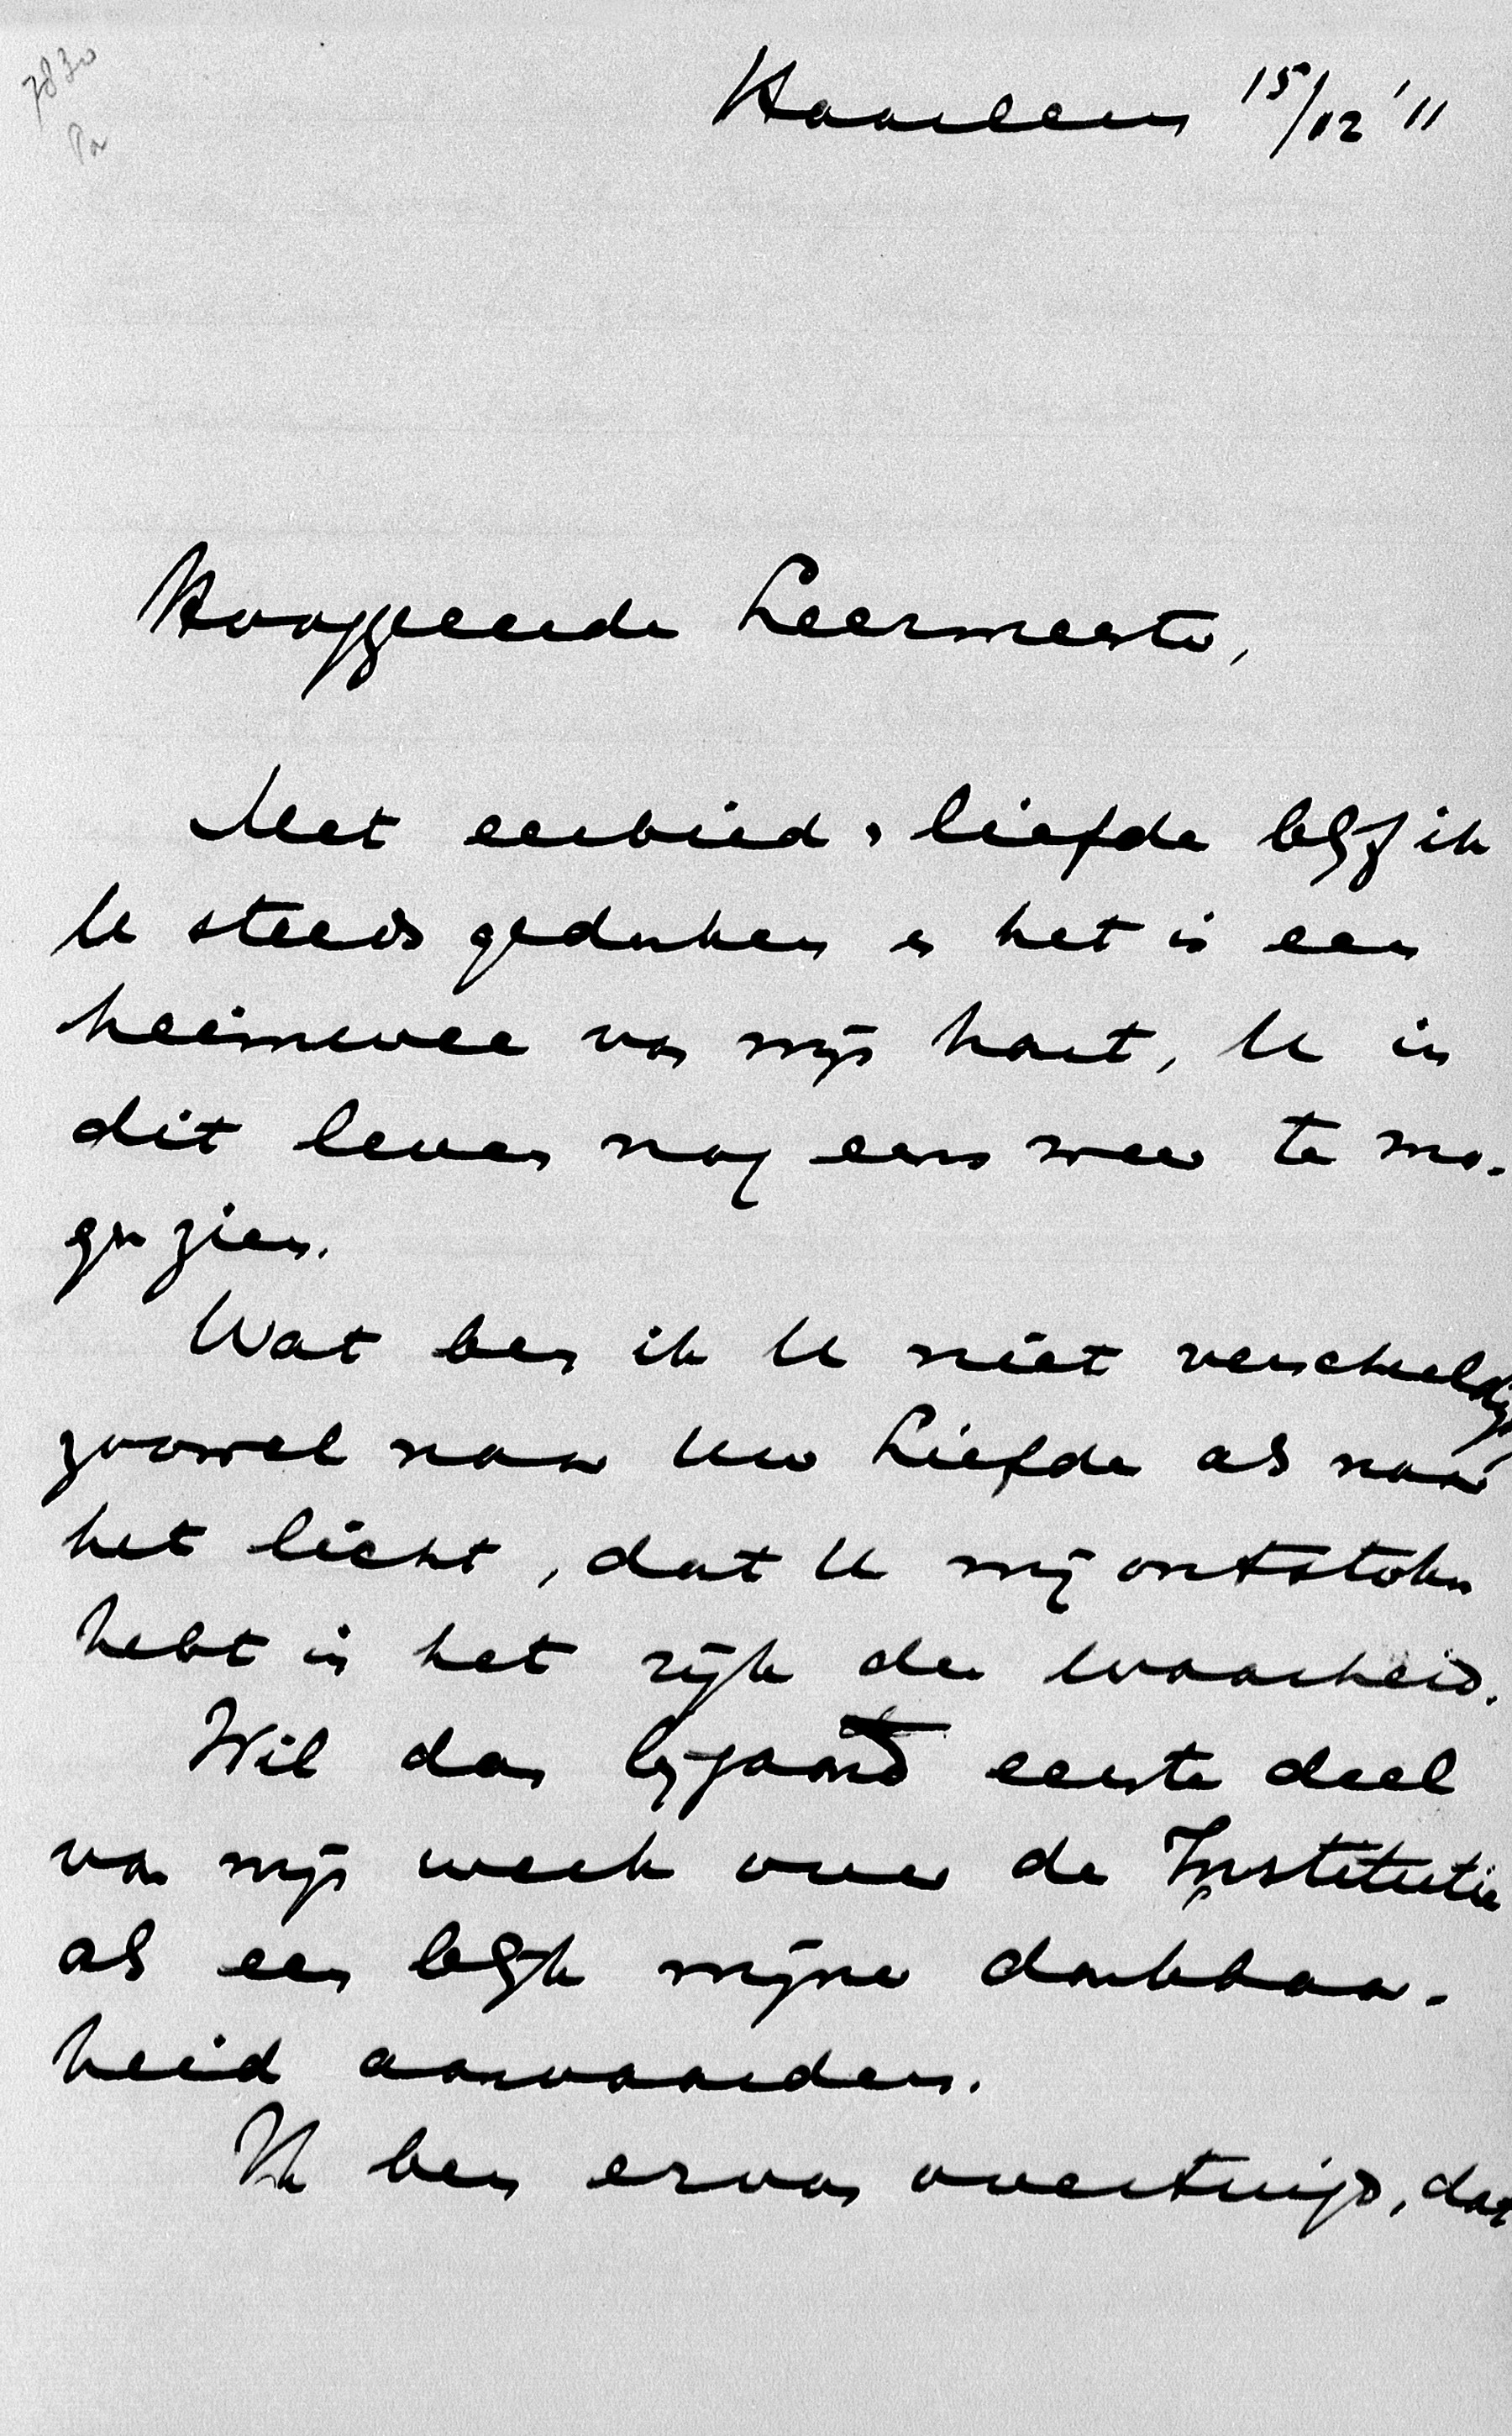 7830
Pa
Haarlem 15/12 '11
Hooggeeerde Leermeester,
Met eerbied & liefde blijf ik
U steeds gedenken en het is een
heimwee van mijn hart, U in
dit leven nog eens weer te mo-
gen zien.
Wat ben ik U niet verschuldigd
zoowel naar Uw Liefde als naar
het licht, dat U mij ontstoken
hebt in het rijk der waarheid.
Wil dan bijgaand eerste deel
van mijn werk over de Institutie
als een blijk mijner dankbaar-
heid aanvaarden.
Ik ben ervan overtuigd, dat